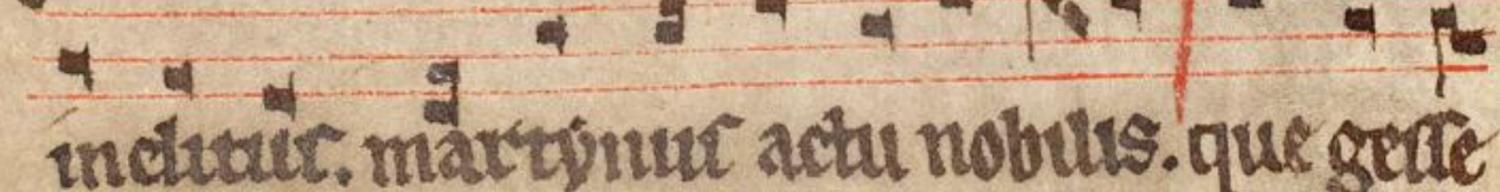 inclituſ. martynuſ actu nobilis. que geſſe